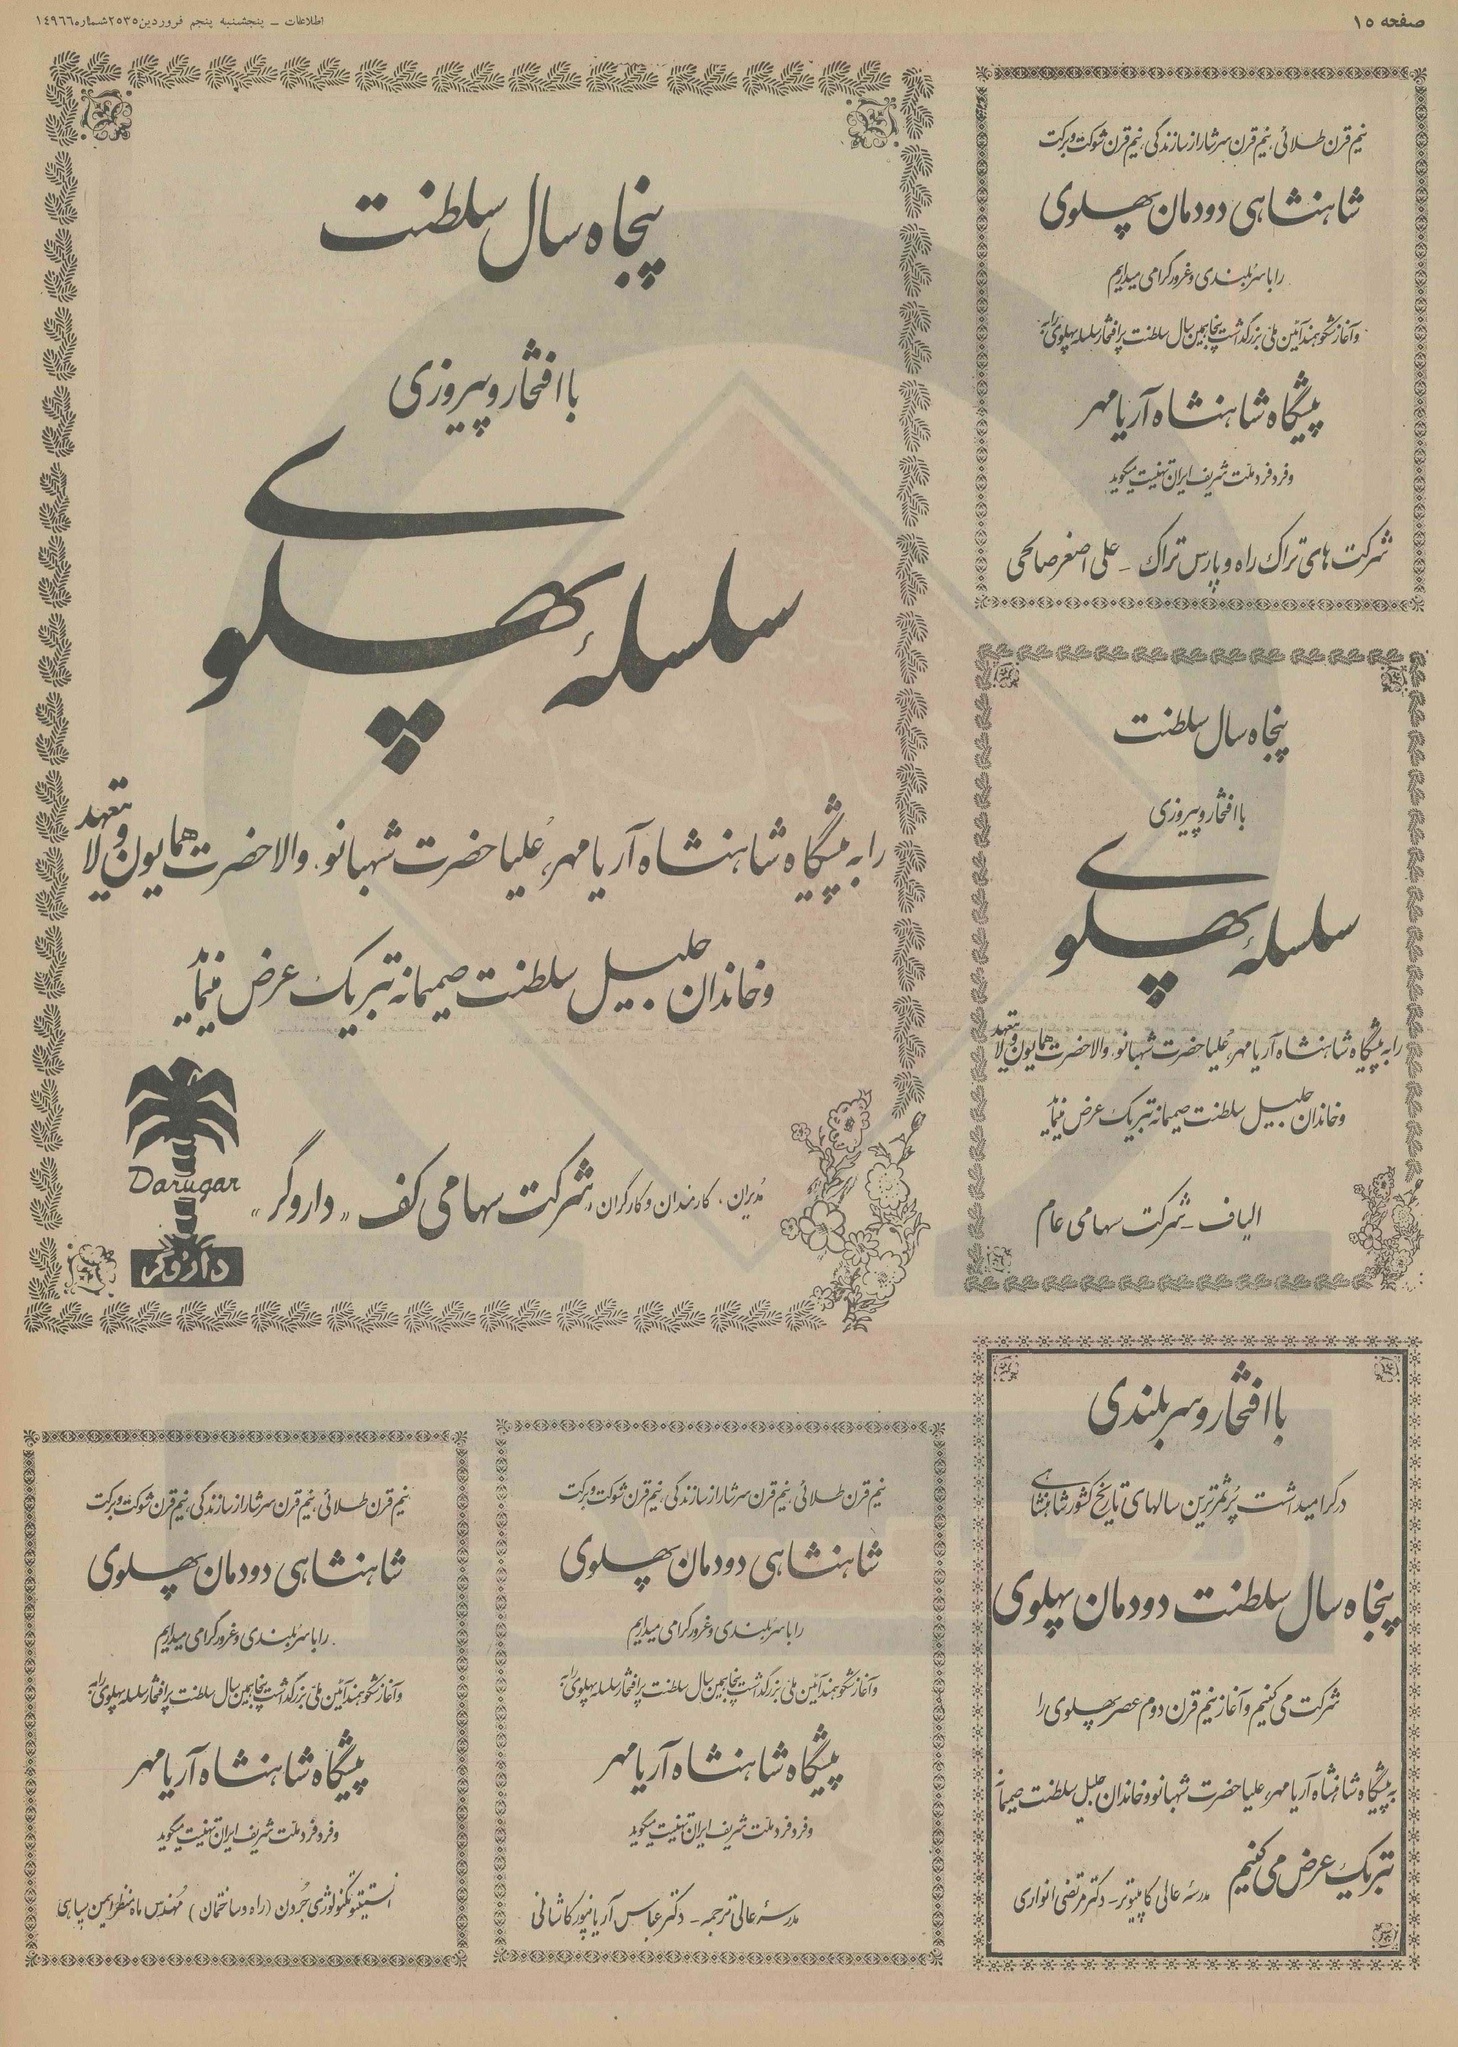 صفحه ۱۵
اطلاعات ـ پنجشنبه پنجم فروردین ۲۵۳۵ شماره ۱۴۹۶۶
نیم قرن طلائی، نیم قرن سرشار از سازندگی، نیم قرن شوکت و برکت
شاهنشاهی دودمان پهلوی
را با سربلندی و غرور گرامی میداریم
و آغاز شکوهمند آئین ملی بزرگداشت پنجاهمین سال سلطنت پرافتخار سلسله پهلوی را به
پیشگاه شاهنشاه آریامهر
و فرد فرد ملت شریف ایران تهنیت میگوید
شرکت های تراک راه و پارس تراک ـ علی اصغر صالحی
پنجاه سال سلطنت
با افتخار و پیروزی
سلسلهٔ پهلوی
را به پیشگاه شاهنشاه آریامهر، عُلیاحضرت شهبانو، والاحضرت همایون ولایتعهد
و خاندان جلیل سلطنت صمیمانه تبریک عرض مینماید
مدیران، کارمندان و کارگران، شرکت سهامی کف «داروگر»
Darugar
داروگر
پنجاه سال سلطنت
با افتخار و پیروزی
سلسلهٔ پهلوی
را به پیشگاه شاهنشاه آریامهر، عُلیاحضرت شهبانو، والاحضرت همایون ولایتعهد
و خاندان جلیل سلطنت صمیمانه تبریک عرض مینماید
الیاف ـ شرکت سهامی عام
با افتخار و سربلندی
در گرامیداشت پُرثمرترین سالهای تاریخ کشور شاهنشاهی
پنجاه سال سلطنت دودمان پهلوی
شرکت می کنیم و آغاز نیم قرن دوم عصر پهلوی را
به پیشگاه شاهنشاه آریامهر، علیاحضرت شهبانو و خاندان جلیل سلطنت صمیمانه
تبریک عرض می کنیم
مدرسهٔ عالی کامپیوتر ـ دکتر مرتضی انواری
نیم قرن طلائی، نیم قرن سرشار از سازندگی، نیم قرن شوکت و برکت
شاهنشاهی دودمان پهلوی
را با سربلندی و غرور گرامی میداریم
و آغاز شکوهمند آئین ملی بزرگداشت پنجاهمین سال سلطنت پرافتخار سلسله پهلوی را به
پیشگاه شاهنشاه آریامهر
و فرد فرد ملت شریف ایران تهنیت میگوید
مدرسهٔ عالی ترجمه ـ دکتر عباس آریانپور کاشانی
نیم قرن طلائی، نیم قرن سرشار از سازندگی، نیم قرن شوکت و برکت
شاهنشاهی دودمان پهلوی
را با سربلندی و غرور گرامی میداریم
و آغاز شکوهمند آئین ملی بزرگداشت پنجاهمین سال سلطنت پرافتخار سلسله پهلوی را به
پیشگاه شاهنشاه آریامهر
و فرد فرد ملت شریف ایران تهنیت میگوید
انستیتو تکنولوژی جُردن (راه و ساختمان) مهندس ماه منظر ایمن سپاهی